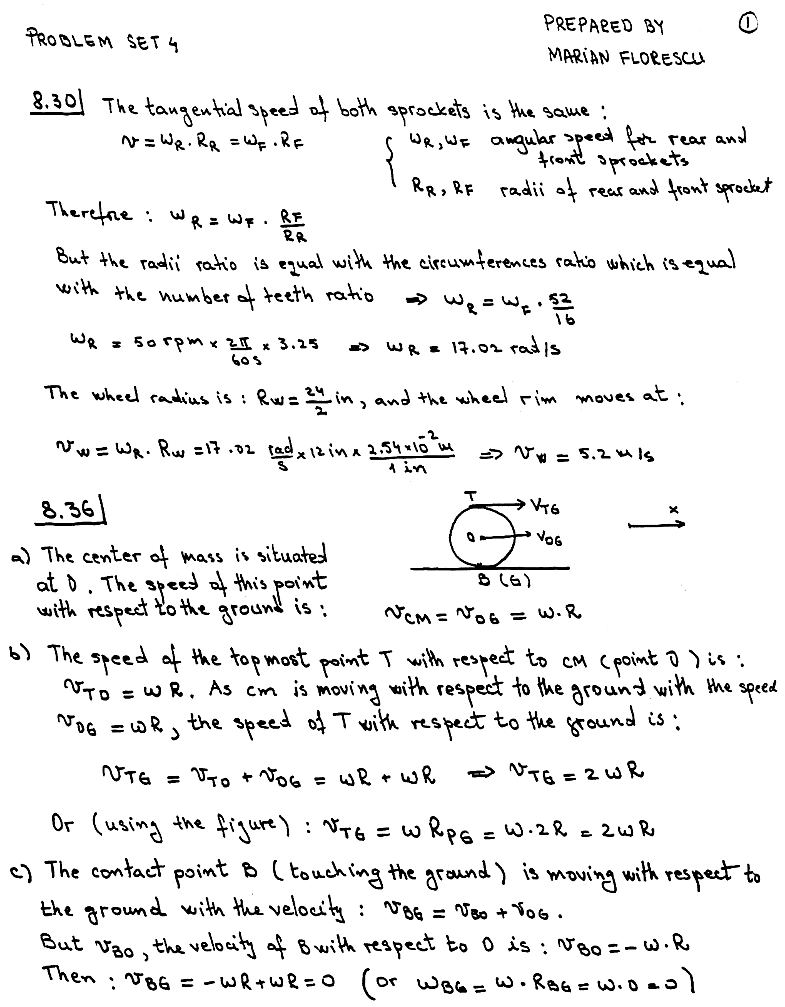 PROBLEM SET 4
PREPARED BY
MARIAN FLORESCU
1
8.30| The tangential speed of both sprockets is the same :
v = ω_R . R_R = ω_F . R_F
{ ω_R, ω_F angular speed for rear and front sprockets
R_R, R_F radii of rear and front sprocket
Therefore : ω_R = ω_F . R_F/R_R
But the radii ratio is equal with the circumferences ratio which is equal
with the number of teeth ratio => ω_R = ω_F . 52/16
ω_R = 50 rpm x 2π/60s x 3.25 => ω_R = 17.02 rad/s
The wheel radius is : R_W = 24/2 in, and the wheel rim moves at :
v_W = ω_R . R_W = 17.02 rad/s x 12 in x 2.54x10^-2 m/1 in => v_W = 5.2 m/s
8.36|
T
V_TG
x
O
V_OG
B (G)
a) The center of mass is situated
at O. The speed of this point
with respect to the ground is :
v_CM = v_OG = ω.R
b) The speed of the topmost point T with respect to CM (point O) is :
v_TO = ωR. As cm is moving with respect to the ground with the speed
v_OG = ωR, the speed of T with respect to the ground is :
v_TG = v_TO + v_OG = ωR + ωR => v_TG = 2ωR
Or (using the figure) : v_TG = ω R_PG = ω.2R = 2ωR
c) The contact point B (touching the ground) is moving with respect to
the ground with the velocity : v_BG = v_BO + v_OG .
But v_BO, the velocity of B with respect to O is : v_BO = -ω.R
Then : v_BG = -ωR+ωR=0 (or ω_BG = ω.R_BG = ω.0 = 0)